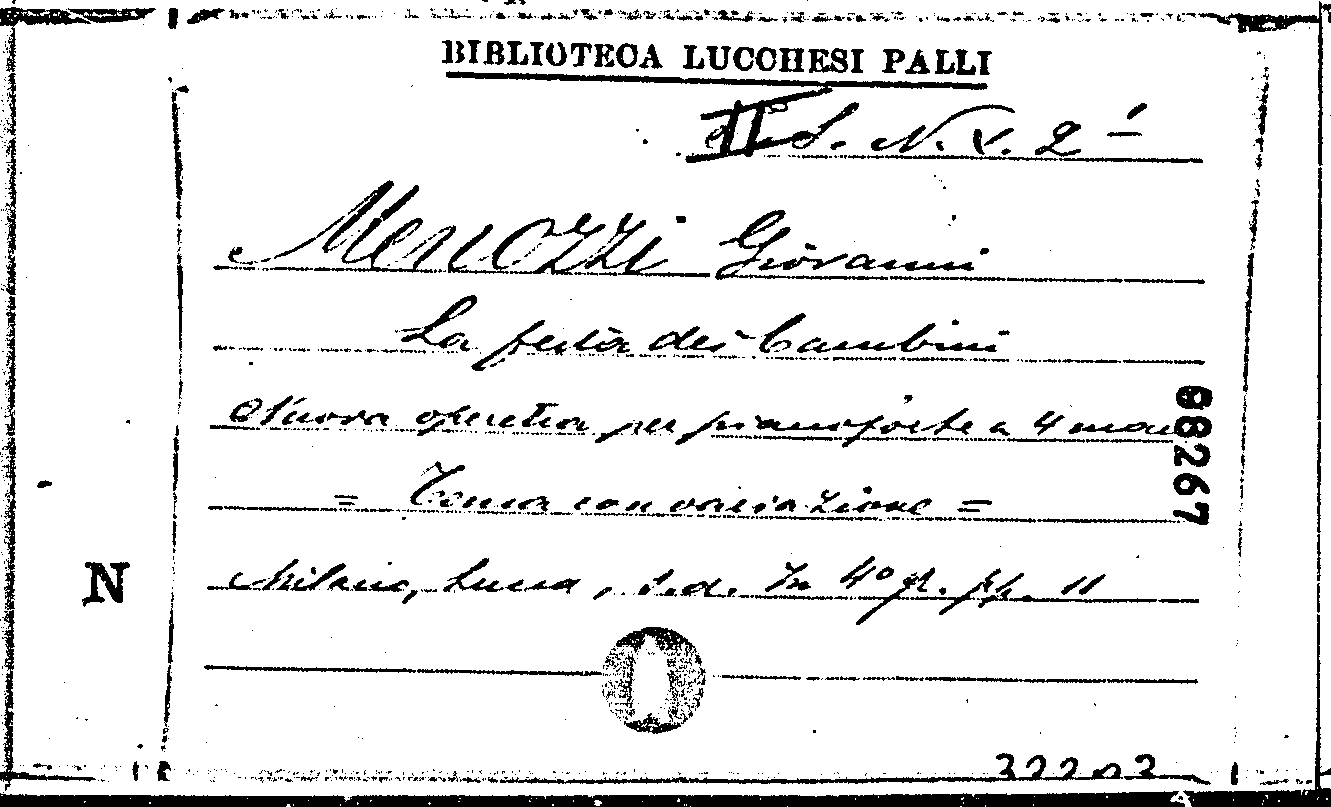 BIBLIOTECA LUCCHESI PALLI
II. S. N. V. 2
Menozzi Giovanni
La festa dei bambini
Nuova operetta per pianoforte a 4 mani
= Tema con variazione =
08267
N
Milano, Lucca, s.d. In 4° gr. pp. 11